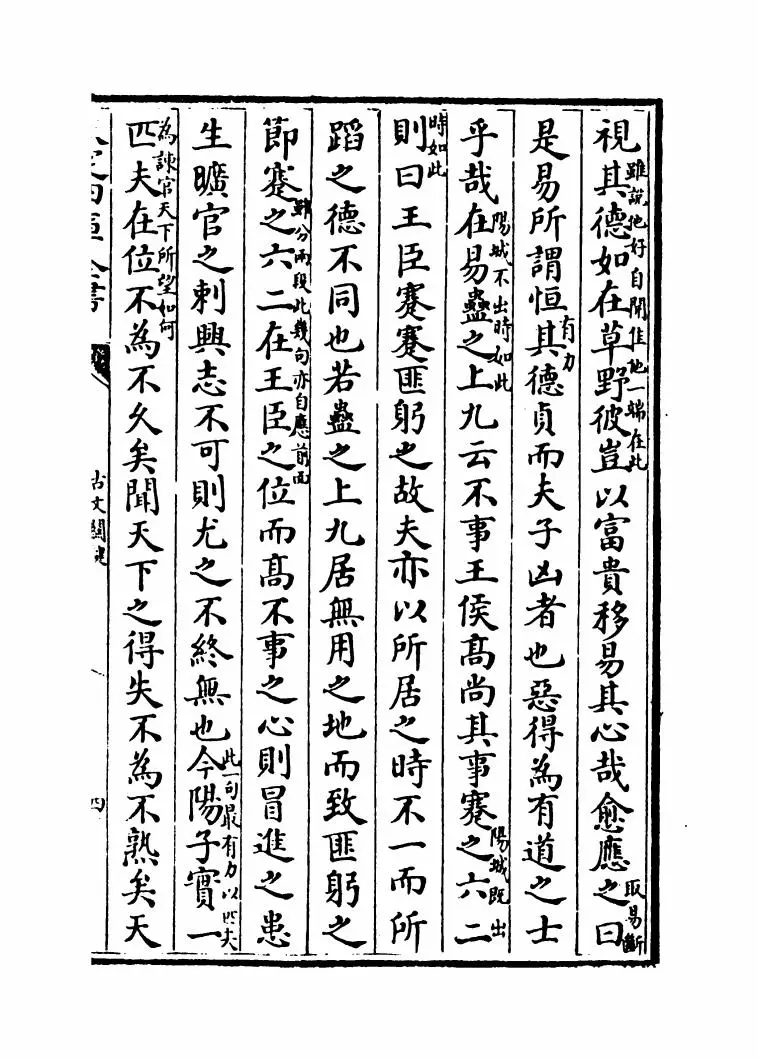 視其德如在草野彼豈以富貴移易其心哉愈應之曰
雖說他好自開一端在此
取易斷
是易所謂恒其德貞而夫子凶者也惡得為有道之士
有力
乎哉在易蠱之上九云不事王侯髙尚其事蹇之六二
陽城不出時如此
陽城既出
時如此
則曰王臣蹇蹇匪躬之故夫亦以所居之時不一而所
蹈之德不同也若蠱之上九居無用之地而致匪躬之
節蹇之六二在王臣之位而髙不事之心則冒進之患
雖分兩段此幾句亦自應前面
生曠官之刺興志不可則尤之不終無也今陽子實一
此一句最有力以匹夫
為諫官天下所望如何
匹夫在位不為不久矣聞天下之得失不為不熟矣天
全書
古文關鍵
四